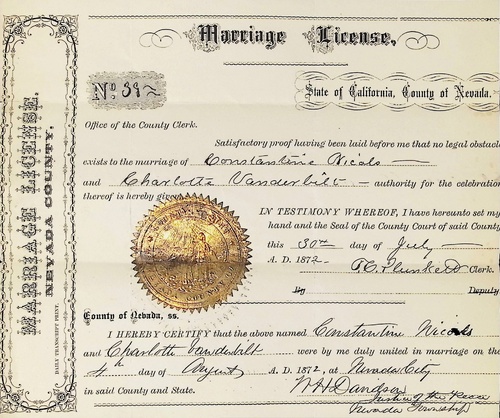 Marriage License,
No. 39
State of California, County of Nevada.
Office of the County Clerk.
Satisfactory proof having been laid before me that no legal obstacle
exists to the marriage of Constantine Nicols
and Charlotte Vanderbilt authority for the celebration
thereof is hereby given
IN TESTIMONY WHEREOF, I have hereunto set my
hand and the Seal of the County Court of said County
this 30th day of July
A. D. 1872 Clerk.
By Deputy
County of Nevada, ss.
I HEREBY CERTIFY that the above named Constantine Nicols
and Charlotte Vanderbilt were by me duly united in marriage on the
4th day of August A. D. 1872, at Nevada City
in said County and State.
Justice of the Peace
Nevada Township
MARRIAGE LICENSE.
NEVADA COUNTY.
DAILY TRANSCRIPT PRINT.